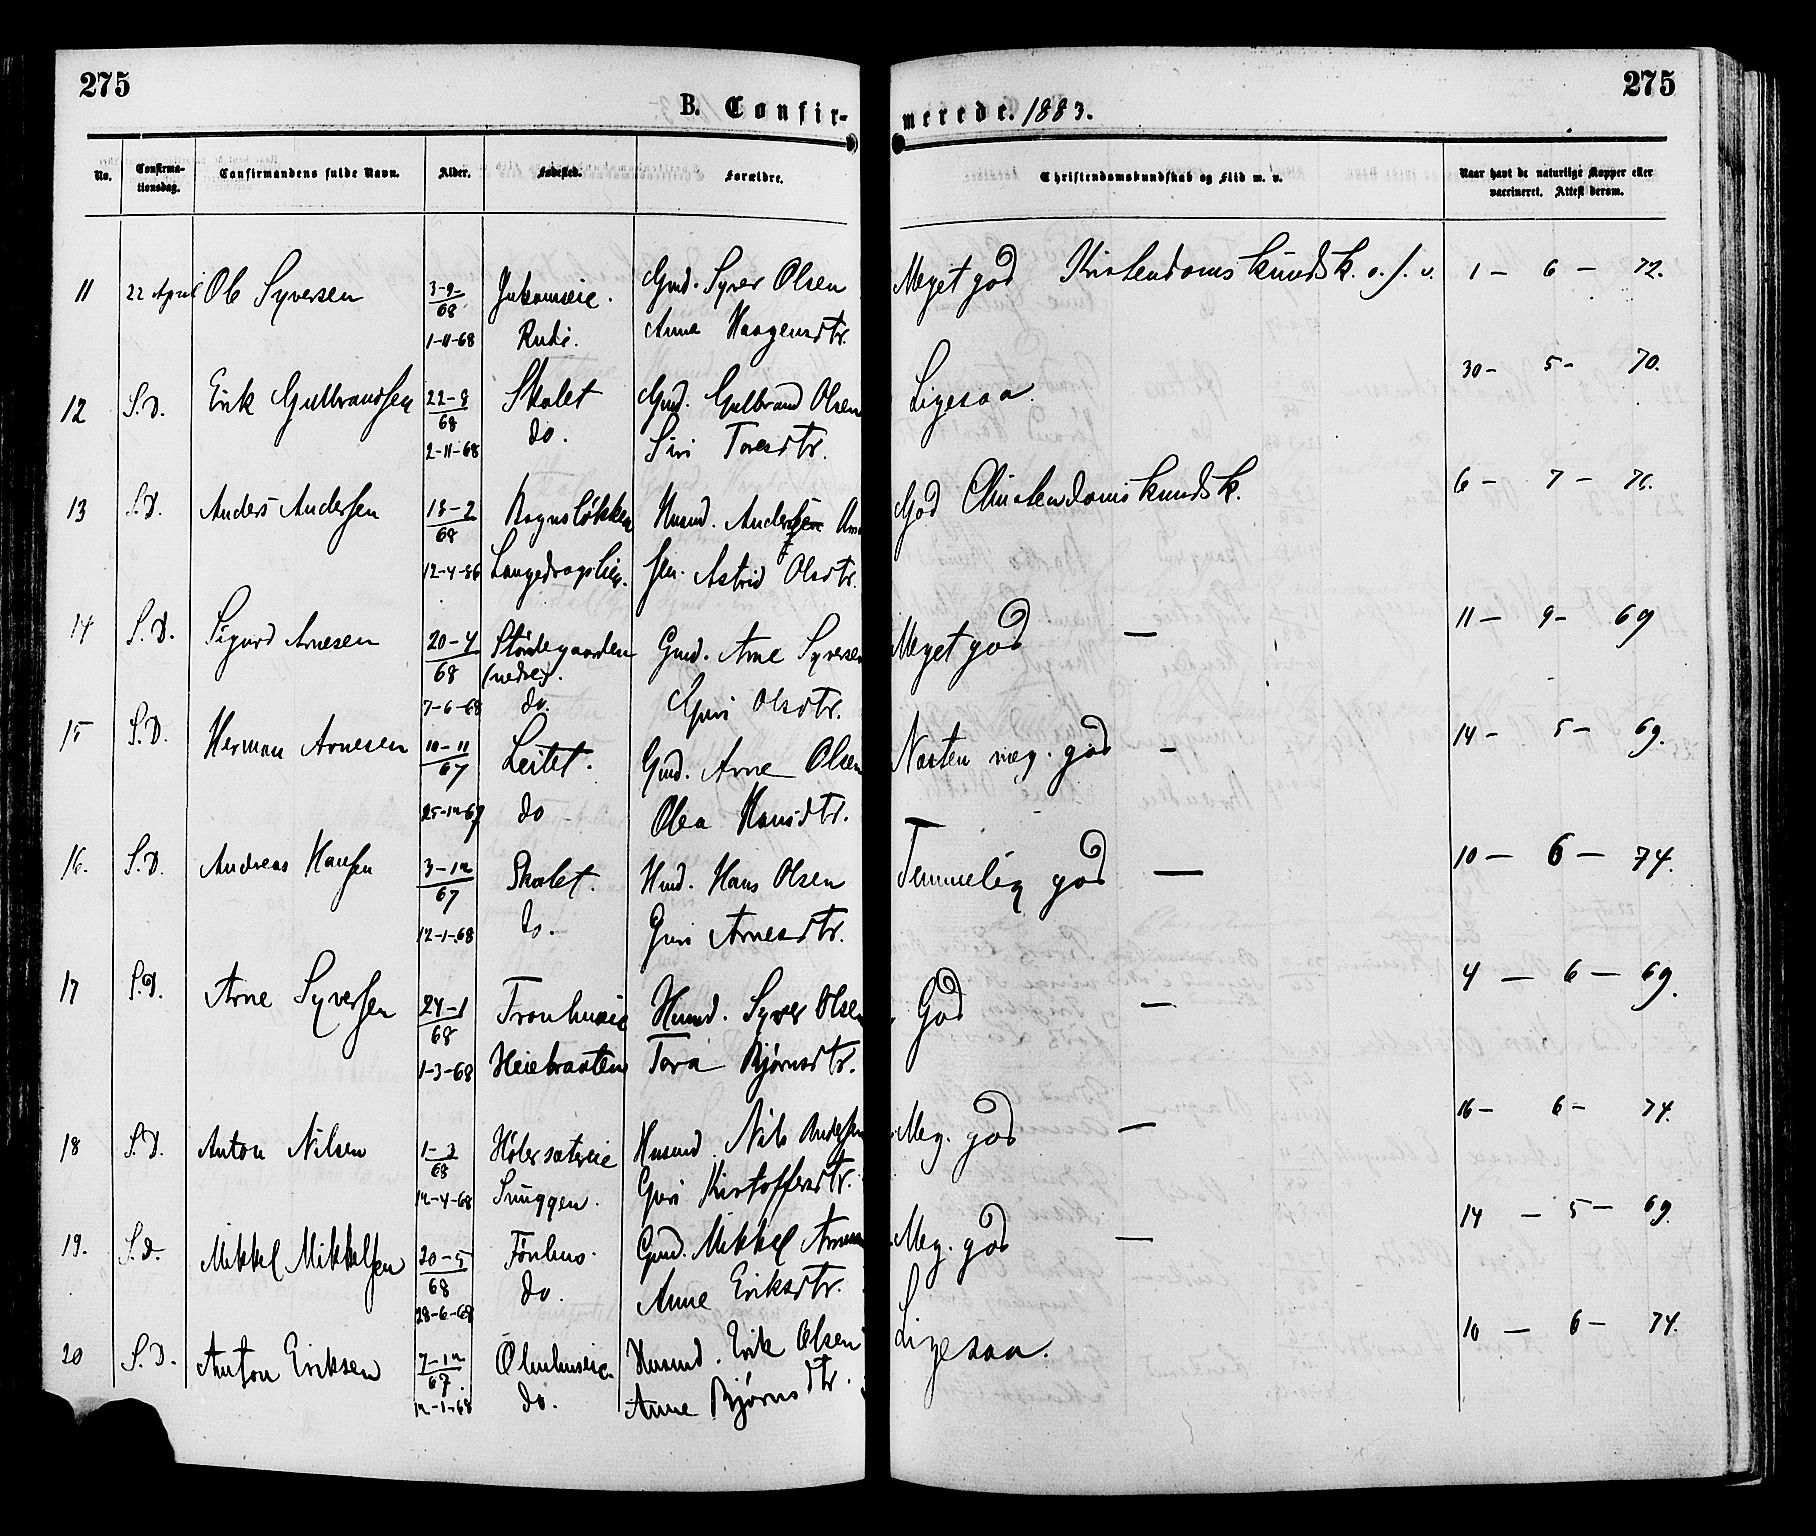 275
275
B. Confir-
merede. 1883.
No.
Confirma-
tionsdag.
Confirmandens fulde Navn.
Alder.
Fødested.
Forældre.
Christendomskundskab og Flid m. v.
Naar havt de naturlige Kopper eller
vaccineret. Attest derom.
11 22 April Ole Syversen 3-9 Gmd. Syver Olsen Meget god Kristendomskundsk. o. f. v. 1 - 6 - 72.
68
1-11-68 Rudi. Anne Haagensdtr.
12 S.D. Erik Gulbrandsen 22-8 Skolet Gmd. Gulbrand Olsen Ligesaa. 30 - 5 - 70.
68
2-11-68 do. Siri Toresdtr.
13 S.D. Anders Andersen 18-2 Husmd. God Christendomskundsk. 6 - 7 - 76.
68
12-4- sen. Astrid Olsdtr.
14 S.D. Sigurd Arnesen 20-4 Gmd. Arne Syversen Meget god — 11 - 9 - 69
68 (nedre).
7-6-68 do. Guri Olsdtr.
15 S.D. Herman Arnesen 10-11 Leitet. Gmd. Arne Olsen Næsten meg. god - 14 - 5 - 69.
67
25-12-67 do Olea Hansdtr.
16. S.D. Andreas Hansen 3-12 Skolet. Hmd. Hans Olsen Temmelig god — 10 - 6 - 74.
67
12-1-68 do. Guri Arnesdtr.
17 S.D. Arne Syversen 24-1 Husmd. Syver Olsen God — 4 - 6 - 69.
68
1-3-68 Heiebraaten Tora Bjørnsdtr.
18 S.D. Anton Nilsen 1-2 Husmd. Nils Andersen Meg. god — 16 - 6 - 74.
68
12-4-68 Snuggen. Guri Kristoffersdtr.
19. S.D. Mikkel Mikkelsen 20-5 Fønhus. Gmd. Mikkel Arnesen Meg. god — 14 - 5 - 69.
68
28-6-68 do. Anne Eriksdtr.
20 S.D. Anton Eriksen 7-12 Husmd. Erik Olsen Ligesaa. 10 - 6 - 74.
67.
12-1-68 do. Anne Bjørnsdtr.